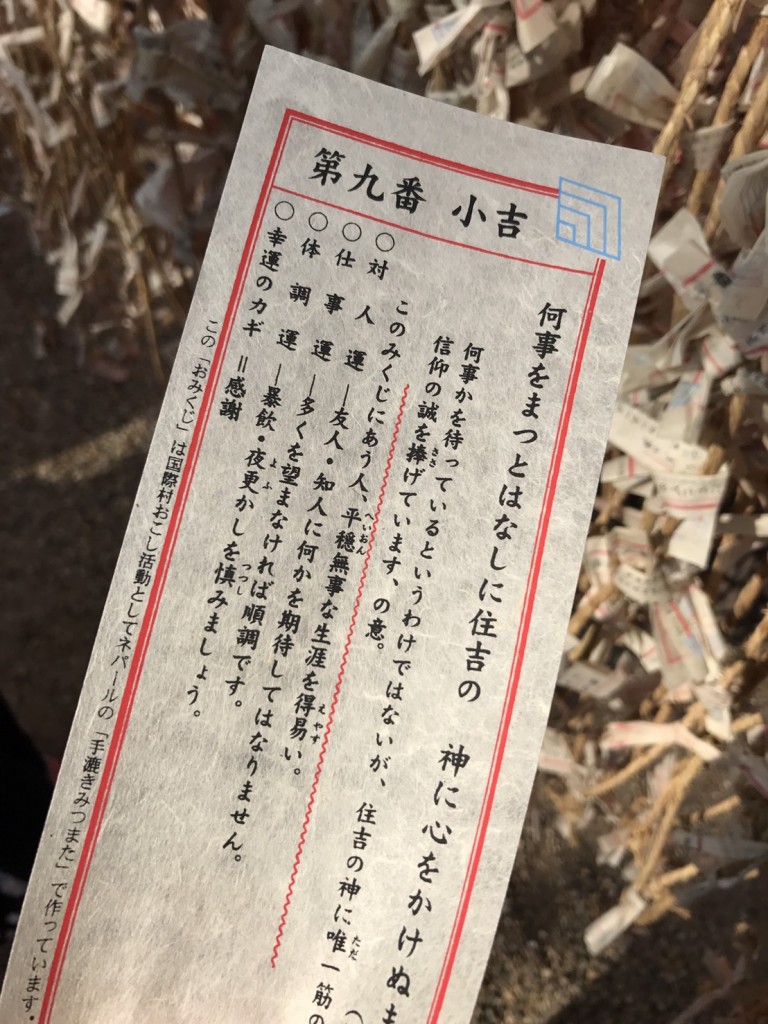 第九番 小吉
何事をまつとはなしに住吉の 神に心をかけぬま
何事かを待っているというわけではないが、住吉の神に唯一筋の
信仰の誠を捧げています、の意。
このみくじにあう人、平穏無事な生涯を得易い。
○対人運―友人・知人に何かを期待してはなりません。
○仕事運―多くを望まなければ順調です。
○体調運―暴飲・夜更かしを慎みましょう。
○幸運のカギ=感謝
この「おみくじ」は国際村おこし活動としてネパールの「手漉きみつまた」で作っています・